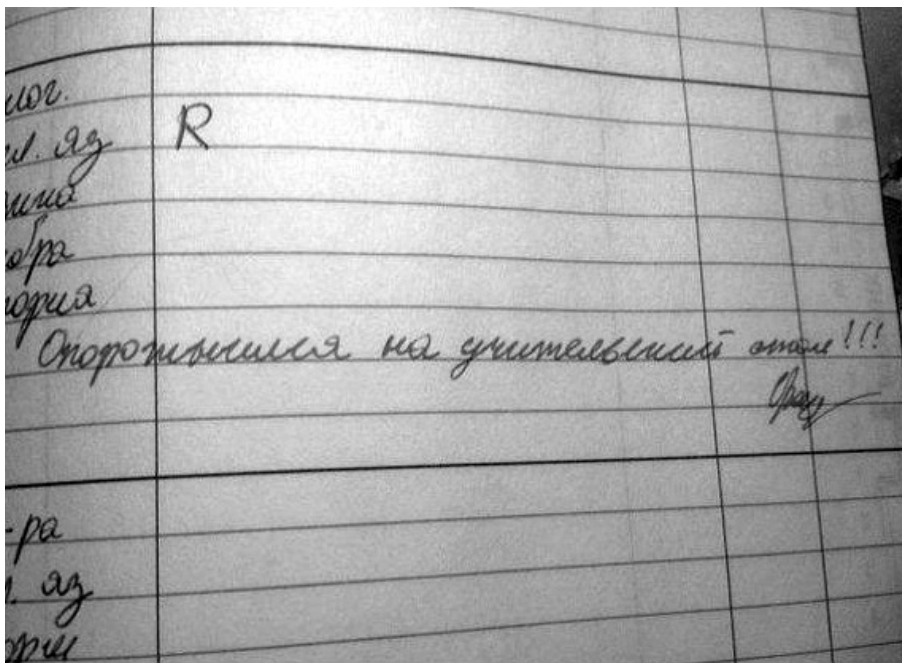 лог.
л. яз R
ика
обра
ория
Опорожнился на учительский стол!!!
-ра
. яз